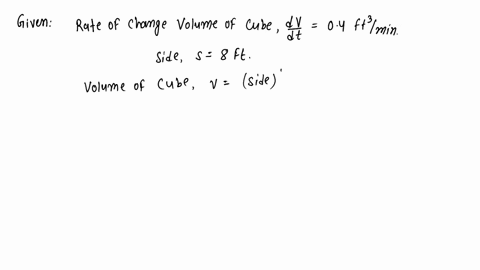 Given: Rate of Change Volume of Cube, dV/dt = 0.4 ft³/min.
Side, s = 8 ft.
Volume of Cube, V = (side)'